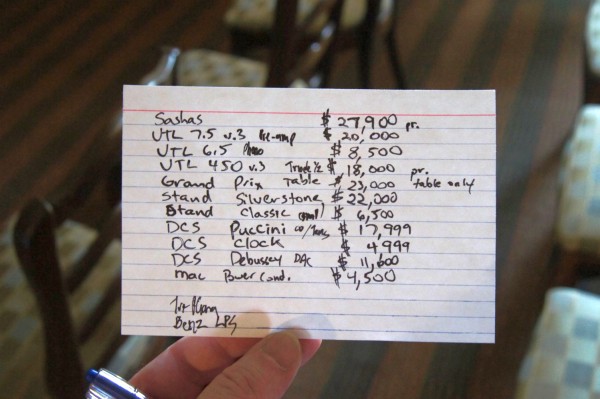 Sashas $ 27,900 pr.
UTL 7.5 v.3 Pre-amp $ 20,000
UTL 6.5 Phono $ 8,500
UTL 450 v.3 $ 18,000 pr.
Grand Prix Table $ 23,000 table only
Stand Silverstone $ 22,000
Stand Classic $ 6,500
DCS Puccini $ 17,999
DCS Clock $ 4,999
DCS Debussy DAC $ 11,600
mac Power Cond. $ 4,500
Benz LPS